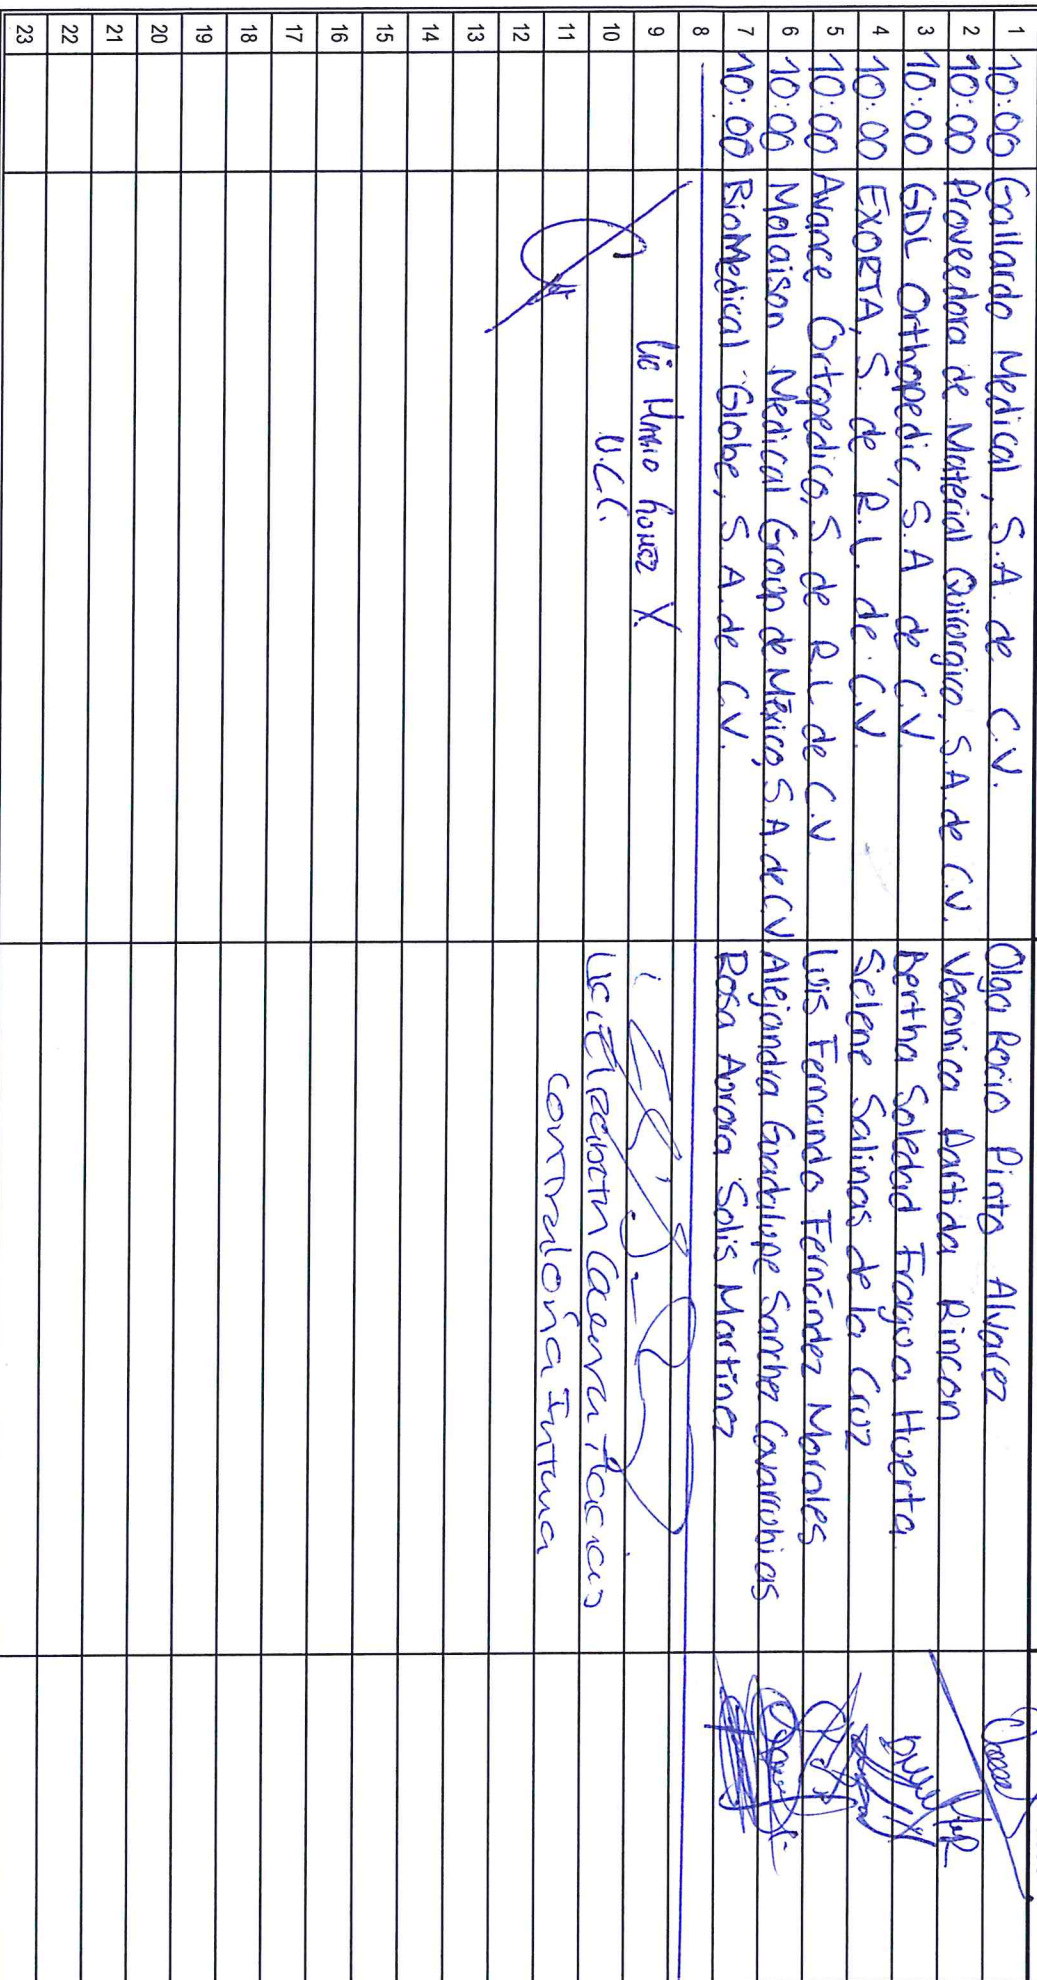 1 10:00 Gaillardo Medical, S.A. de C.V. Olga Rocio Pinto Alvarez
2 10:00 Proveedora de Material Quirorgico, S.A. de C.V. Veronica Partida Rincon
3 10:00 GDL Orthopedic, S.A de C.V. Bertha Soledad Fragoa Huerta.
4 10:00 EXORTA, S. de R.L. de C.V. Selene Salinas de la Cruz
5 10:00 Avance Ortopedico, S. de R.L de C.V. Luis Fernando Fernández Morales
6 10:00 Molaison Medical Group de México, S.A. de C.V. Alejandra Guadalupe Sanchez Covarrubias
7 10:00 BioMedical Globe, S.A. de C.V. Rosa Aurora Solis Martínez
8
9 Lic
10 U.C.C. Lic
11 Contraloría Interna
12
13
14
15
16
17
18
19
20
21
22
23